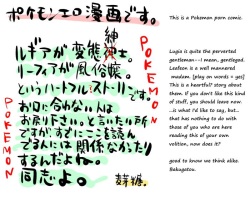 ポケモンエロ漫画です。
ルギアが変態紳士。
リーフィアが風俗嬢。
というハートフルストーリです。
お口に合わない人は
お戻り下さい。と言いたい所
ですが、すでにここを読ん
でるには関係なかったり
するんだよね。
同志よ。
POKEMON
POKEMON
This is a Pokemon porn comic.
Lugia is quite the perverted
gentleman--I mean, gentlegod.
Leafeon is a well mannered
madam. [play on words = yes]
This is a heartful! story about
them. If you don't like this kind
of stuff, you should leave now.
...is what I'd like to say, but...
that has nothing to do with
those of you who are here
reading this of your own
volition, now does it?
good to know we think alike.
Bakugatou.